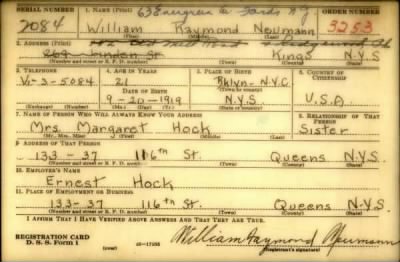 SERIAL NUMBER 1. NAME (Print) ORDER NUMBER
2084 William Raymond Neumann 3253
(First) (Middle) (Last)
2. ADDRESS (Print)
269 Linden St Kings N.Y.S.
(Number and street or R. F. D. number) (Town) (County) (State)
3. TELEPHONE 4. AGE IN YEARS 5. PLACE OF BIRTH 6. COUNTRY OF CITIZENSHIP
V-3-5084 21 Bklyn - N.Y.C.
DATE OF BIRTH (Town or county)
9-20-1919 N.Y.S. U.S.A.
7. NAME OF PERSON WHO WILL ALWAYS KNOW YOUR ADDRESS 8. RELATIONSHIP OF THAT PERSON
Mrs. Margaret Hock Sister
(Mr., Mrs., Miss) (First) (Middle) (Last)
9. ADDRESS OF THAT PERSON
133-37 116th St. Queens N.Y.S.
(Number and street or R. F. D. number) (Town) (County) (State)
10. EMPLOYER'S NAME
Ernest Hock
11. PLACE OF EMPLOYMENT OR BUSINESS
133-37 116th St. Queens N.Y.S.
(Number and street or R. F. D. number) (Town) (County) (State)
I AFFIRM THAT I HAVE VERIFIED ABOVE ANSWERS AND THAT THEY ARE TRUE.
REGISTRATION CARD
D. S. S. Form 1 (over) William Raymond Neumann
(Registrant's signature)